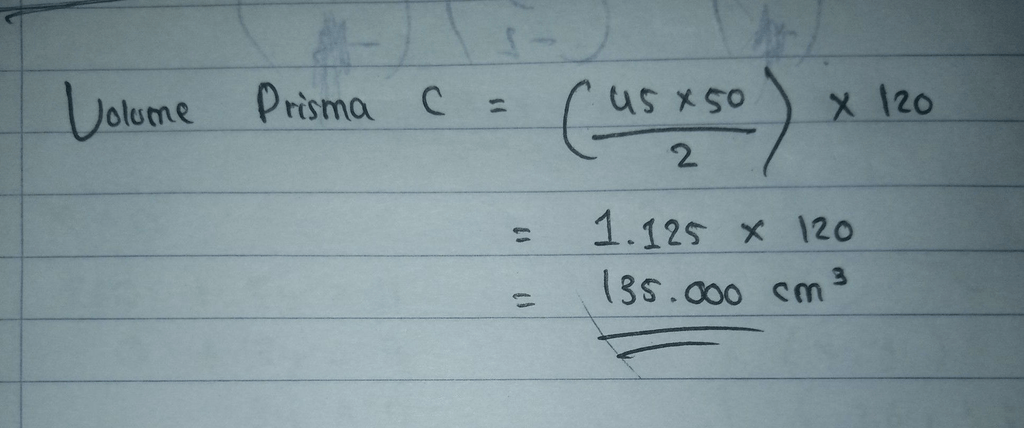 Volume Prisma C = (45 x 50 / 2) x 120
= 1.125 x 120
= 135.000 cm³